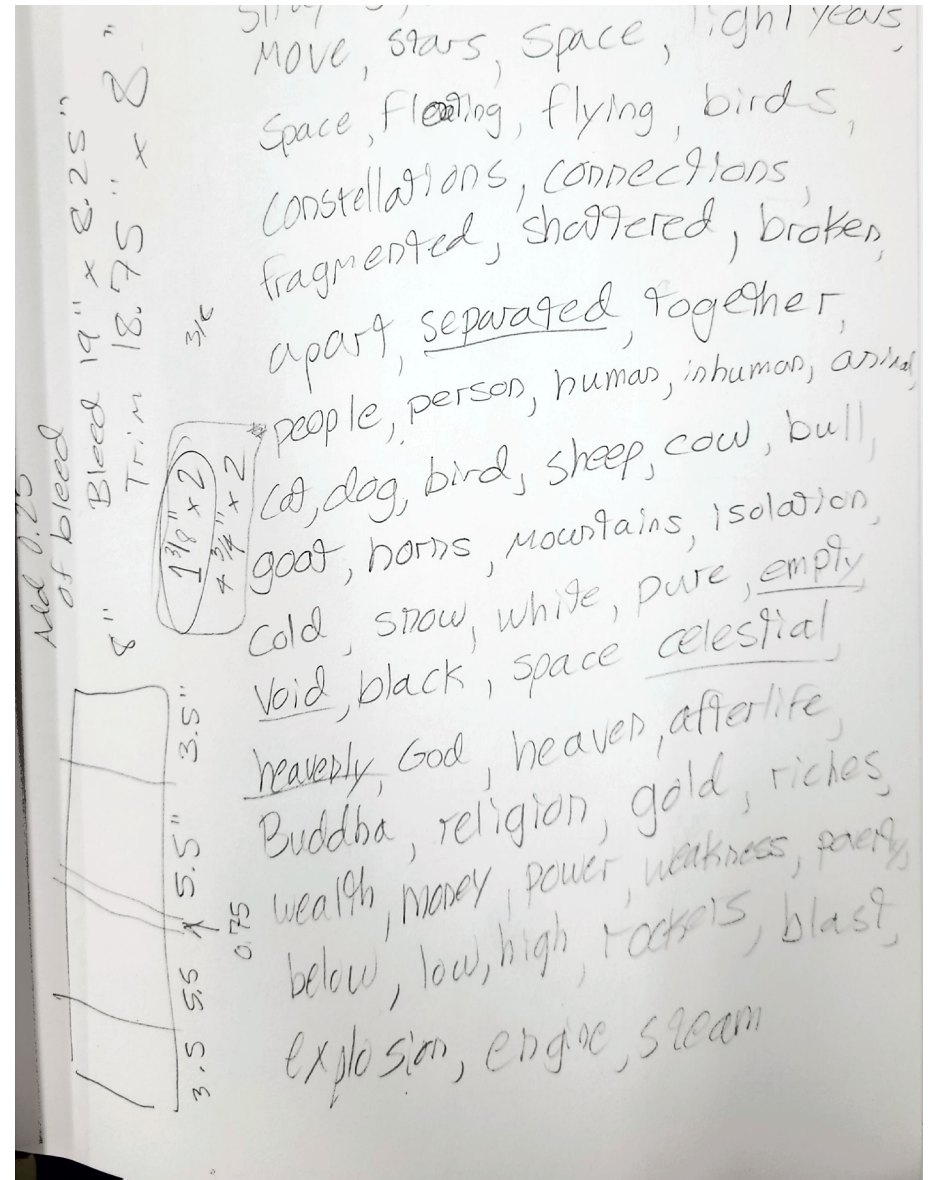 Move, stars, space, light years,
space, floating, flying, birds,
constellations, connections,
fragmented, shattered, broken,
apart, separated, together,
people, person, human, inhuman, animal,
cat, dog, bird, sheep, cow, bull,
goat, horns, mountains, isolation,
cold, snow, white, pure, empty
void, black, space celestial,
heavenly, God, heaven, afterlife,
Buddha, religion, gold, riches,
wealth, money, power, weakness, poverty,
below, low, high, rockets, blast,
explosion, engine, steam
Add 0.25
of bleed
Bleed 19" x 8.25"
Trim 18.75" x 8"
8"
1 3/8" x 2
4 3/4" x 2
3.5 5.5 5.5" 3.5"
0.75